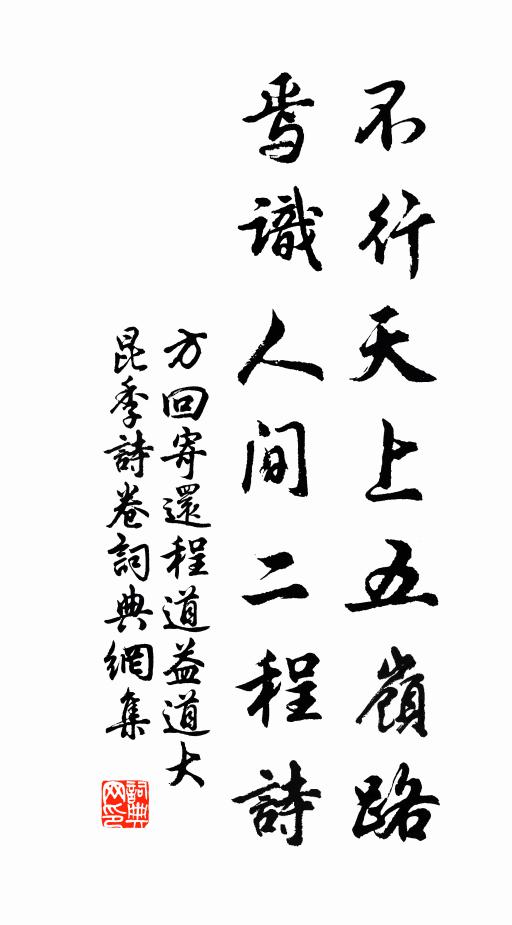 不行天上五嶺路
焉識人間二程詩
方回寄還程道益道大
昆季詩卷詞典網集
詞典
网印